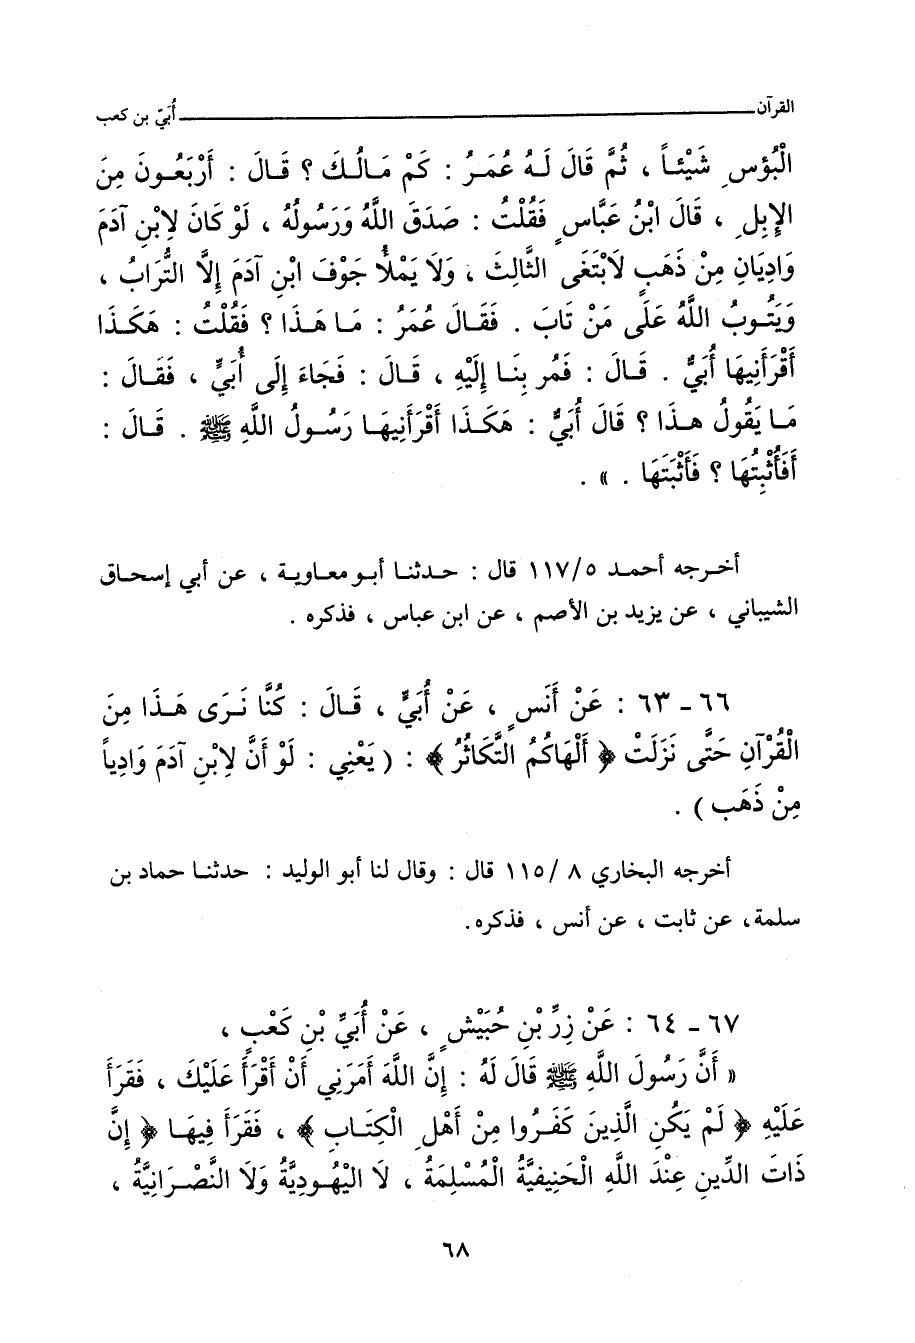 القرآن ــــــــــــــــــــ أُبَيّ بن كعب
الْبُؤْسِ شَيْئاً ، ثُمَّ قَالَ لَهُ عُمَرُ : كَمْ مَالُكَ ؟ قَالَ : أَرْبَعُونَ مِنَ
الإِبِلِ ، قَالَ ابْنُ عَبَّاسٍ فَقُلْتُ : صَدَقَ اللَّهُ وَرَسُولُهُ ، لَوْ كَانَ لِابْنِ آدَمَ
وَادِيَانِ مِنْ ذَهَبٍ لَابْتَغَى الثَّالِثَ ، وَلَا يَمْلأُ جَوْفَ ابْنِ آدَمَ إِلَّا التُّرَابُ ،
وَيَتُوبُ اللَّهُ عَلَى مَنْ تَابَ . فَقَالَ عُمَرُ : مَا هَذَا ؟ فَقُلْتُ : هَكَذَا
أَقْرَأَنِيهَا أُبَيٌّ . قَالَ : فَمُر بِنَا إِلَيْهِ ، قَالَ : فَجَاءَ إِلَى أُبَيٍّ ، فَقَالَ :
مَا يَقُولُ هذَا ؟ قَالَ أُبَيٌّ : هَكَذَا أَقْرَأَنِيهَا رَسُولُ اللَّهِ ﷺ . قَالَ :
أَفَأُثْبِتُهَا ؟ فَأَثْبَتَهَا . » .
أخرجه أحمد ٥/١١٧ قال : حدثنا أبو معاوية ، عن أبي إسحاق
الشيباني ، عن يزيد بن الأصم ، عن ابن عباس ، فذكره .
٦٦ - ٦٣ : عَنْ أَنَسٍ ، عَنْ أُبَيٍّ ، قَالَ : كُنَّا نَرَى هَذَا مِنَ
الْقُرْآنِ حَتَّى نَزَلَتْ ﴿ أَلْهَاكُمُ التَّكَاثُرُ ﴾ : ( يَعْنِي : لَوْ أَنَّ لِابْنِ آدَمَ وَادِياً
مِنْ ذَهَب ) .
أخرجه البخاري ٨ /١١٥ قال : وقال لنا أبو الوليد : حدثنا حماد بن
سلمة، عن ثابت ، عن أنس ، فذكره.
٦٧ - ٦٤ : عَنْ زِرِّ بْنِ حُبَيْشٍ ، عَنْ أُبَيِّ بْنِ كَعْبٍ ،
« أَنَّ رَسُولَ اللَّهِ ﷺ قَالَ لَهُ : إِنَّ اللَّهَ أَمَرَنِي أَنْ أَقْرَأَ عَلَيْكَ ، فَقَرَأَ
عَلَيْهِ ﴿ لَمْ يَكُنِ الَّذِينَ كَفَرُوا مِنْ أَهْلِ الْكِتَابِ ﴾ ، فَقَرَأَ فِيهَا ﴿ إِنَّ
ذَاتَ الدِّينِ عِنْدَ اللَّهِ الْحَنِيفِيَّةُ الْمُسْلِمَةُ ، لَا الْيَهُودِيَّةُ وَلَا النَّصْرَانِيَّةُ ،
٦٨